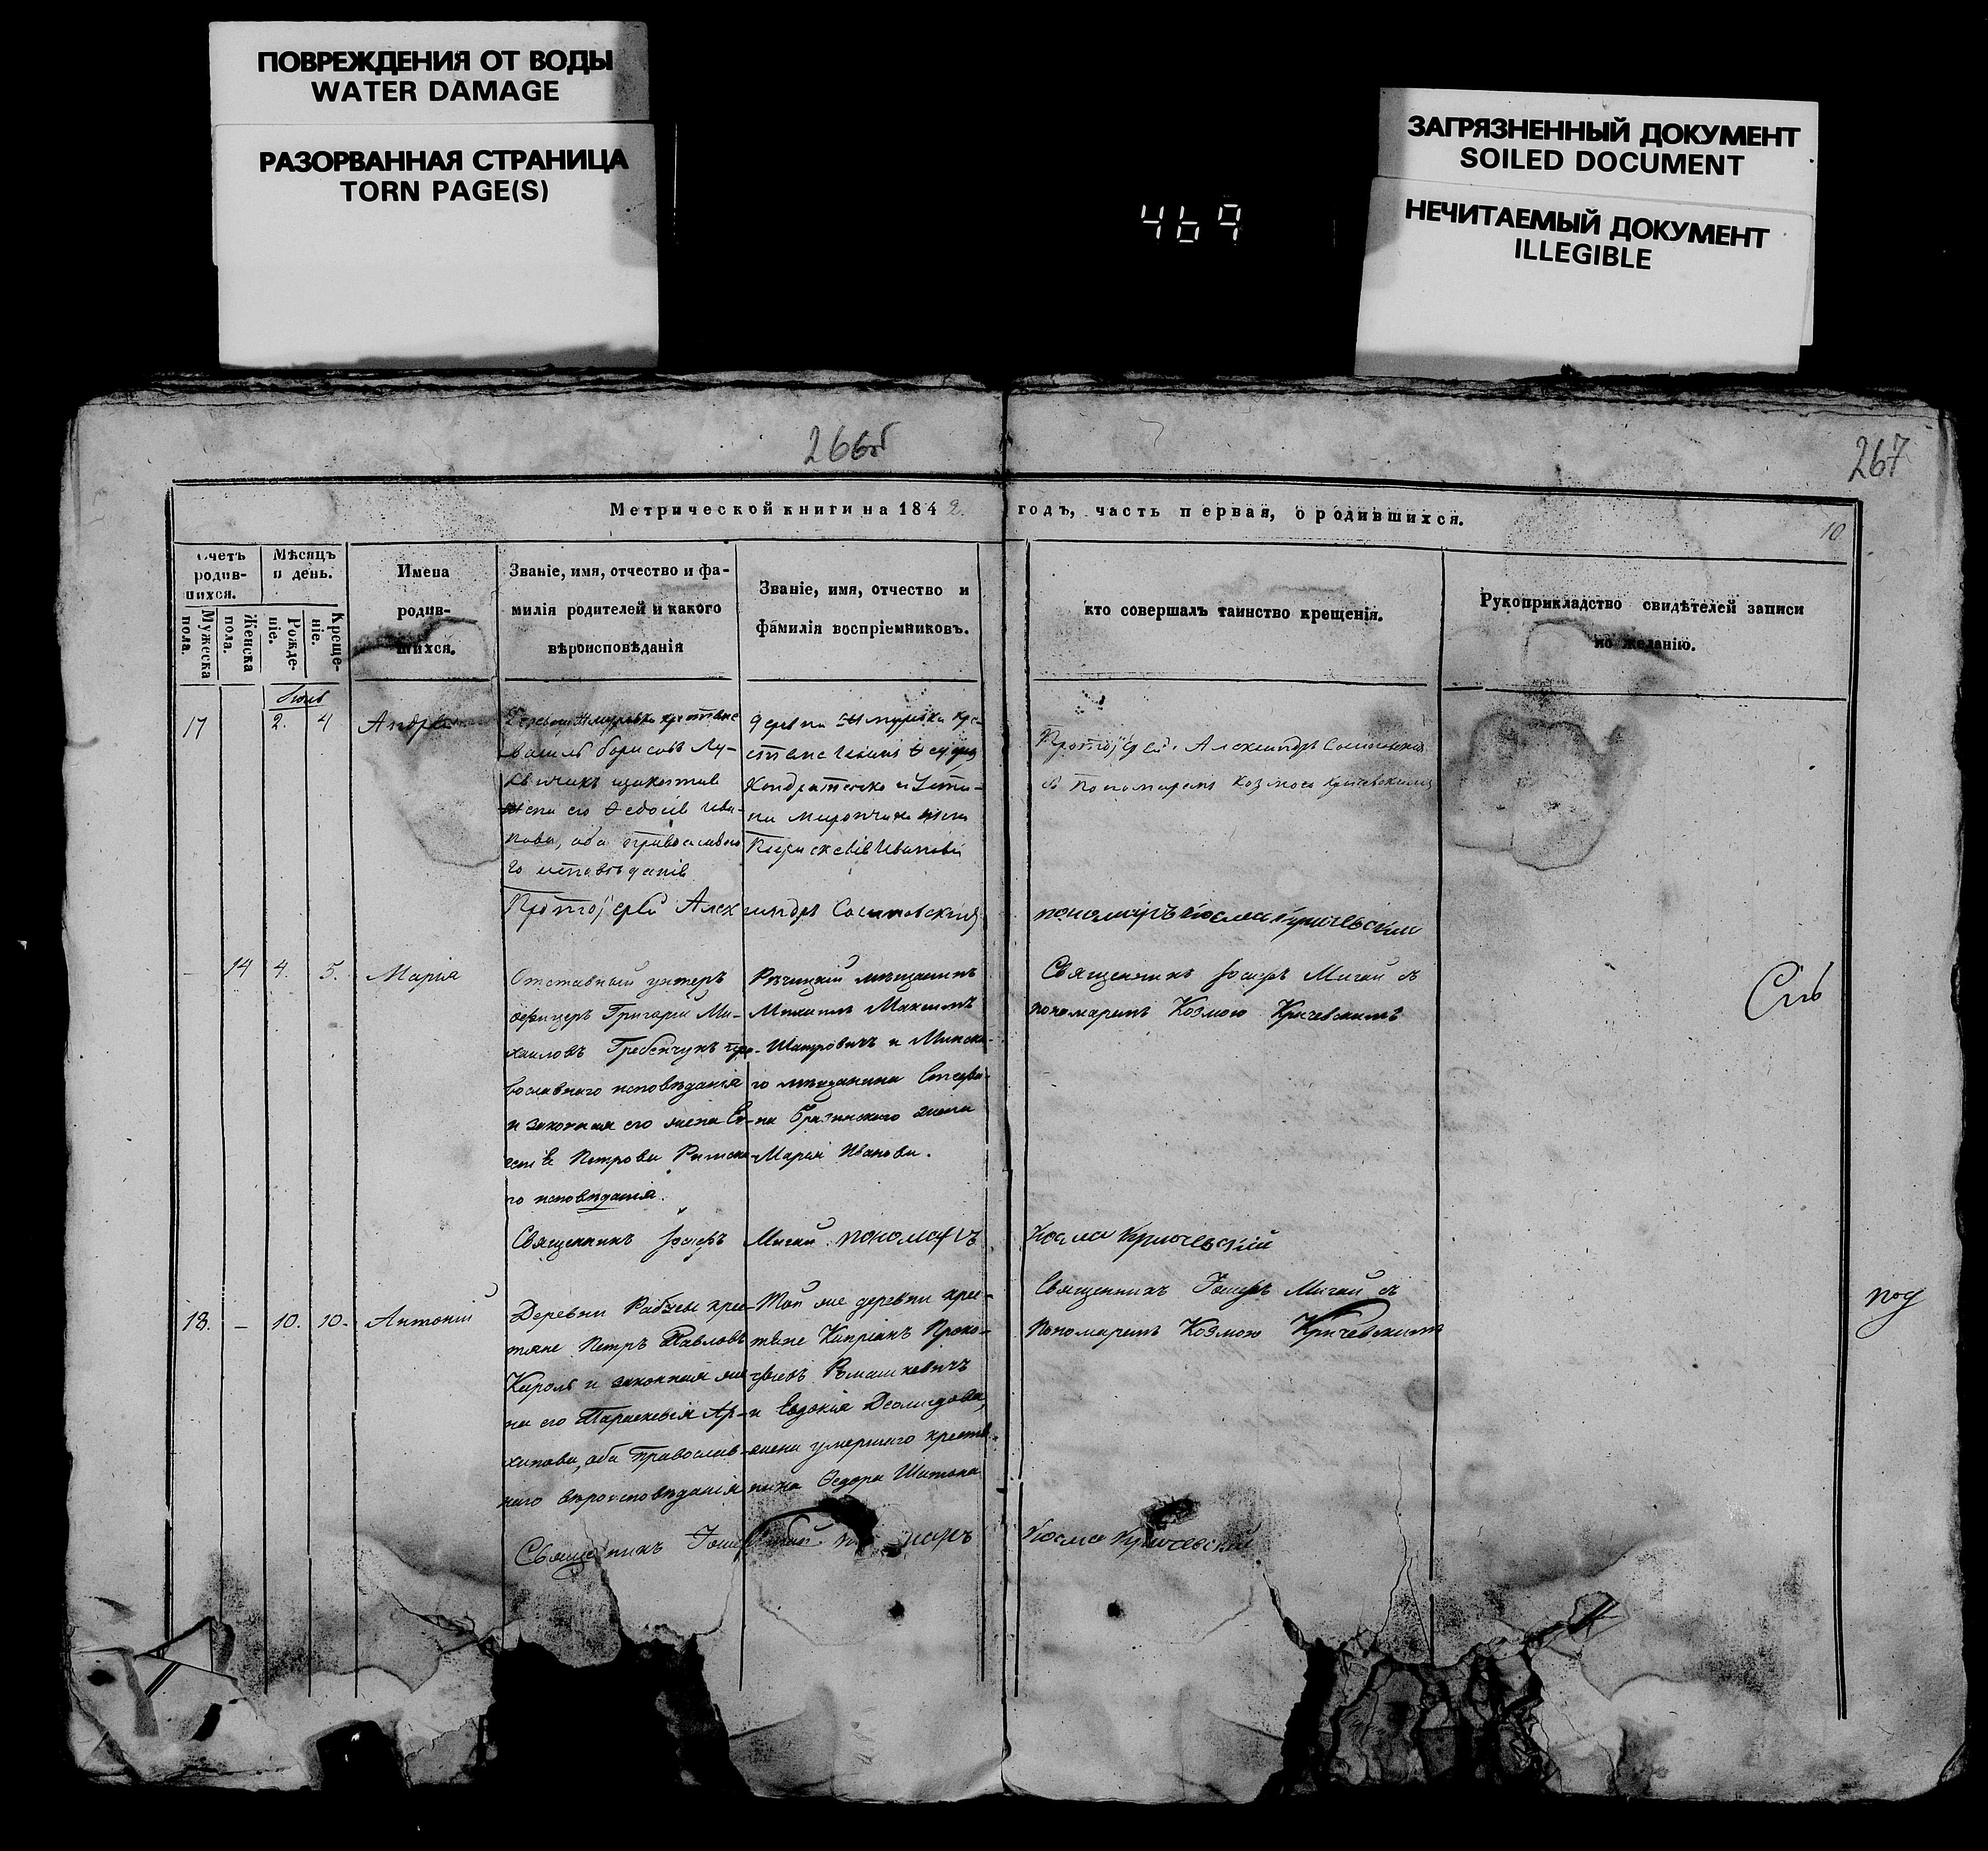 ПОВРЕЖДЕНИЯ ОТ ВОДЫ
WATER DAMAGE
РАЗОРВАННАЯ СТРАНИЦА
TORN PAGE(S)
ЗАГРЯЗНЕННЫЙ ДОКУМЕНТ
SOILED DOCUMENT
НЕЧИТАЕМЫЙ ДОКУМЕНТ
ILLEGIBLE
469
266об
267
Метрической книги на 1842 годъ, часть первая, о родившихся.
10
Счетъ родив-шихся.
Мужеска пола.
Женска пола.
Мѣсяцъ и день.
Рожде-ніе.
Креще-ніе.
Имена
родив-
шихся.
Званіе, имя, отчество и фа-
милія родителей и какого
вѣроисповѣданія
Званіе, имя, отчество и
фамилія воспріемниковъ.
кто совершалъ таинство крещенія.
Рукоприкладство свидѣтелей записи
по желанію.
17
2. 4
Андрей
Василь Борисовъ Лу-
жена его Ѳеодосія Ива-
нова, оба православна
го исповѣданія
Кондратенко и Усти-
на Мирончика жена
Параскевія Иванова
Протоіерей Александръ
съ Пономаремъ Козмою Кричевскимъ
Протоіерей Александръ
пономарь Косма Кричевскій
- 14 4. 5. Марія
Отставный унтеръ
офицеръ Григорій Ми-
хаиловъ Гребенчукъ пра-
вославнаго исповѣданія
и законная его жена
Петрова Римска-
го исповѣданія.
Рѣчицкій мѣщанинъ
Михаилъ Максимъ
и Минска-
го мѣщанина Степа-
на жена
Марія Иванова.
Священникъ Іосифъ Мигай съ
пономаремъ Козмою Кричевскимъ
Священникъ Іосифъ Мигай пономарь Косма Кричевскій
18. - 10. 10. Антоній
Деревни крес-
тяне Петръ Павловъ
Кироль и законная же-
на его Параскевія Ар-
хипова, оба православ-
наго вѣроисповѣданія
Той же деревни крес-
тяне Кипріанъ Проко-
фьевъ Ромашкевичъ
и Евдокія Деомидова,
жена умершаго крестья-
нина Ѳедора
Священникъ Іосифъ Мигай съ
Пономаремъ Козмою Кричевскимъ
под
Священникъ Косма Кричевскій